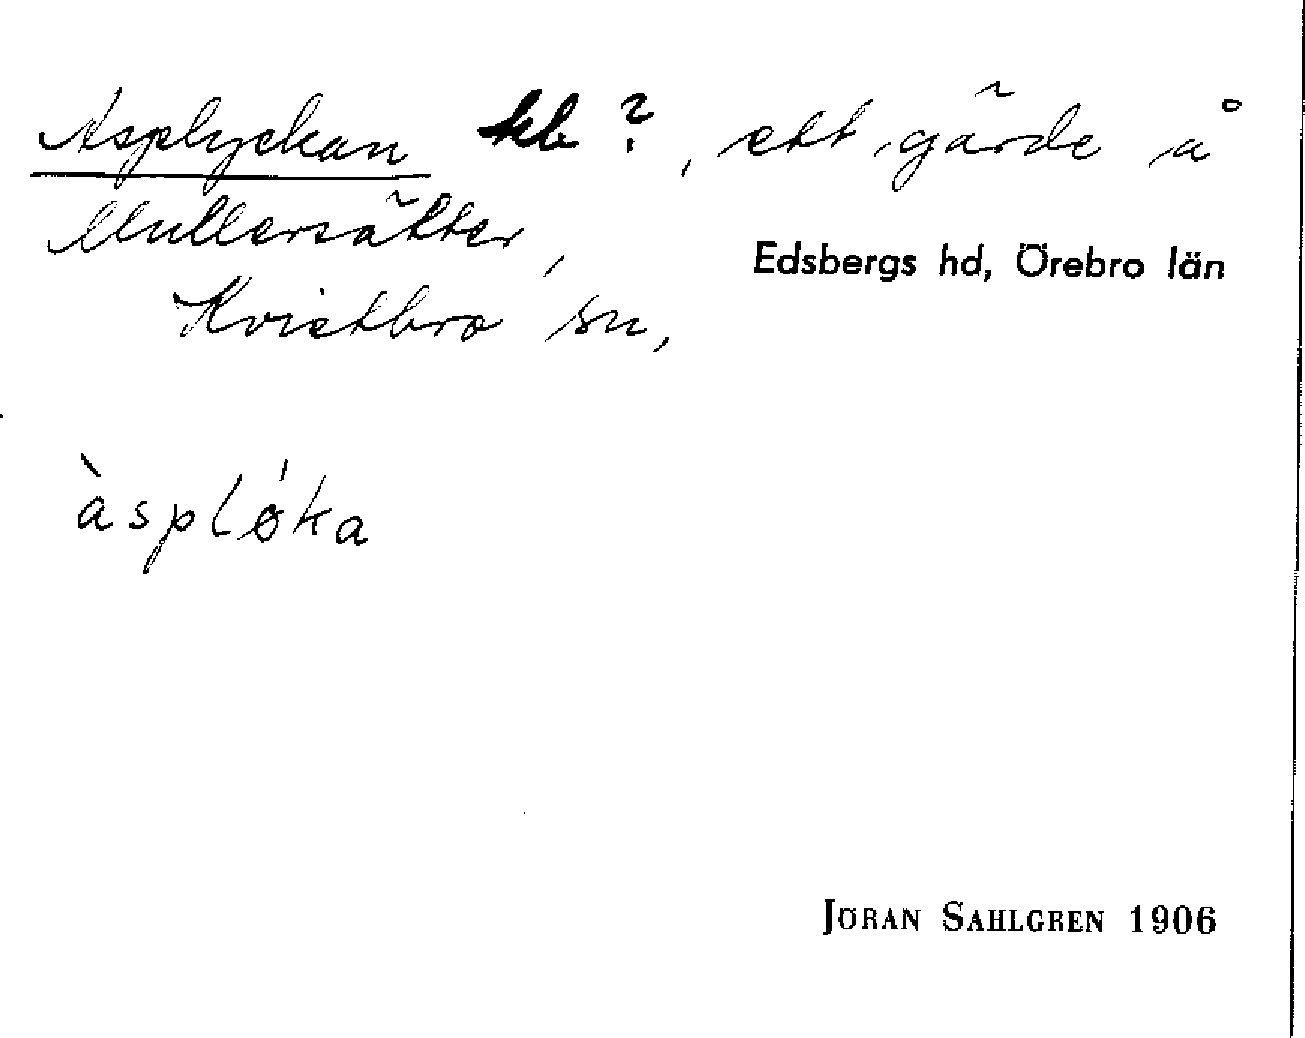 Asplyckan kb ?, ett gärde å
Mullersätter,
Edsbergs hd, Örebro län
Kvistbro sn,
àsplǿka
JÖRAN SAHLGREN 1906